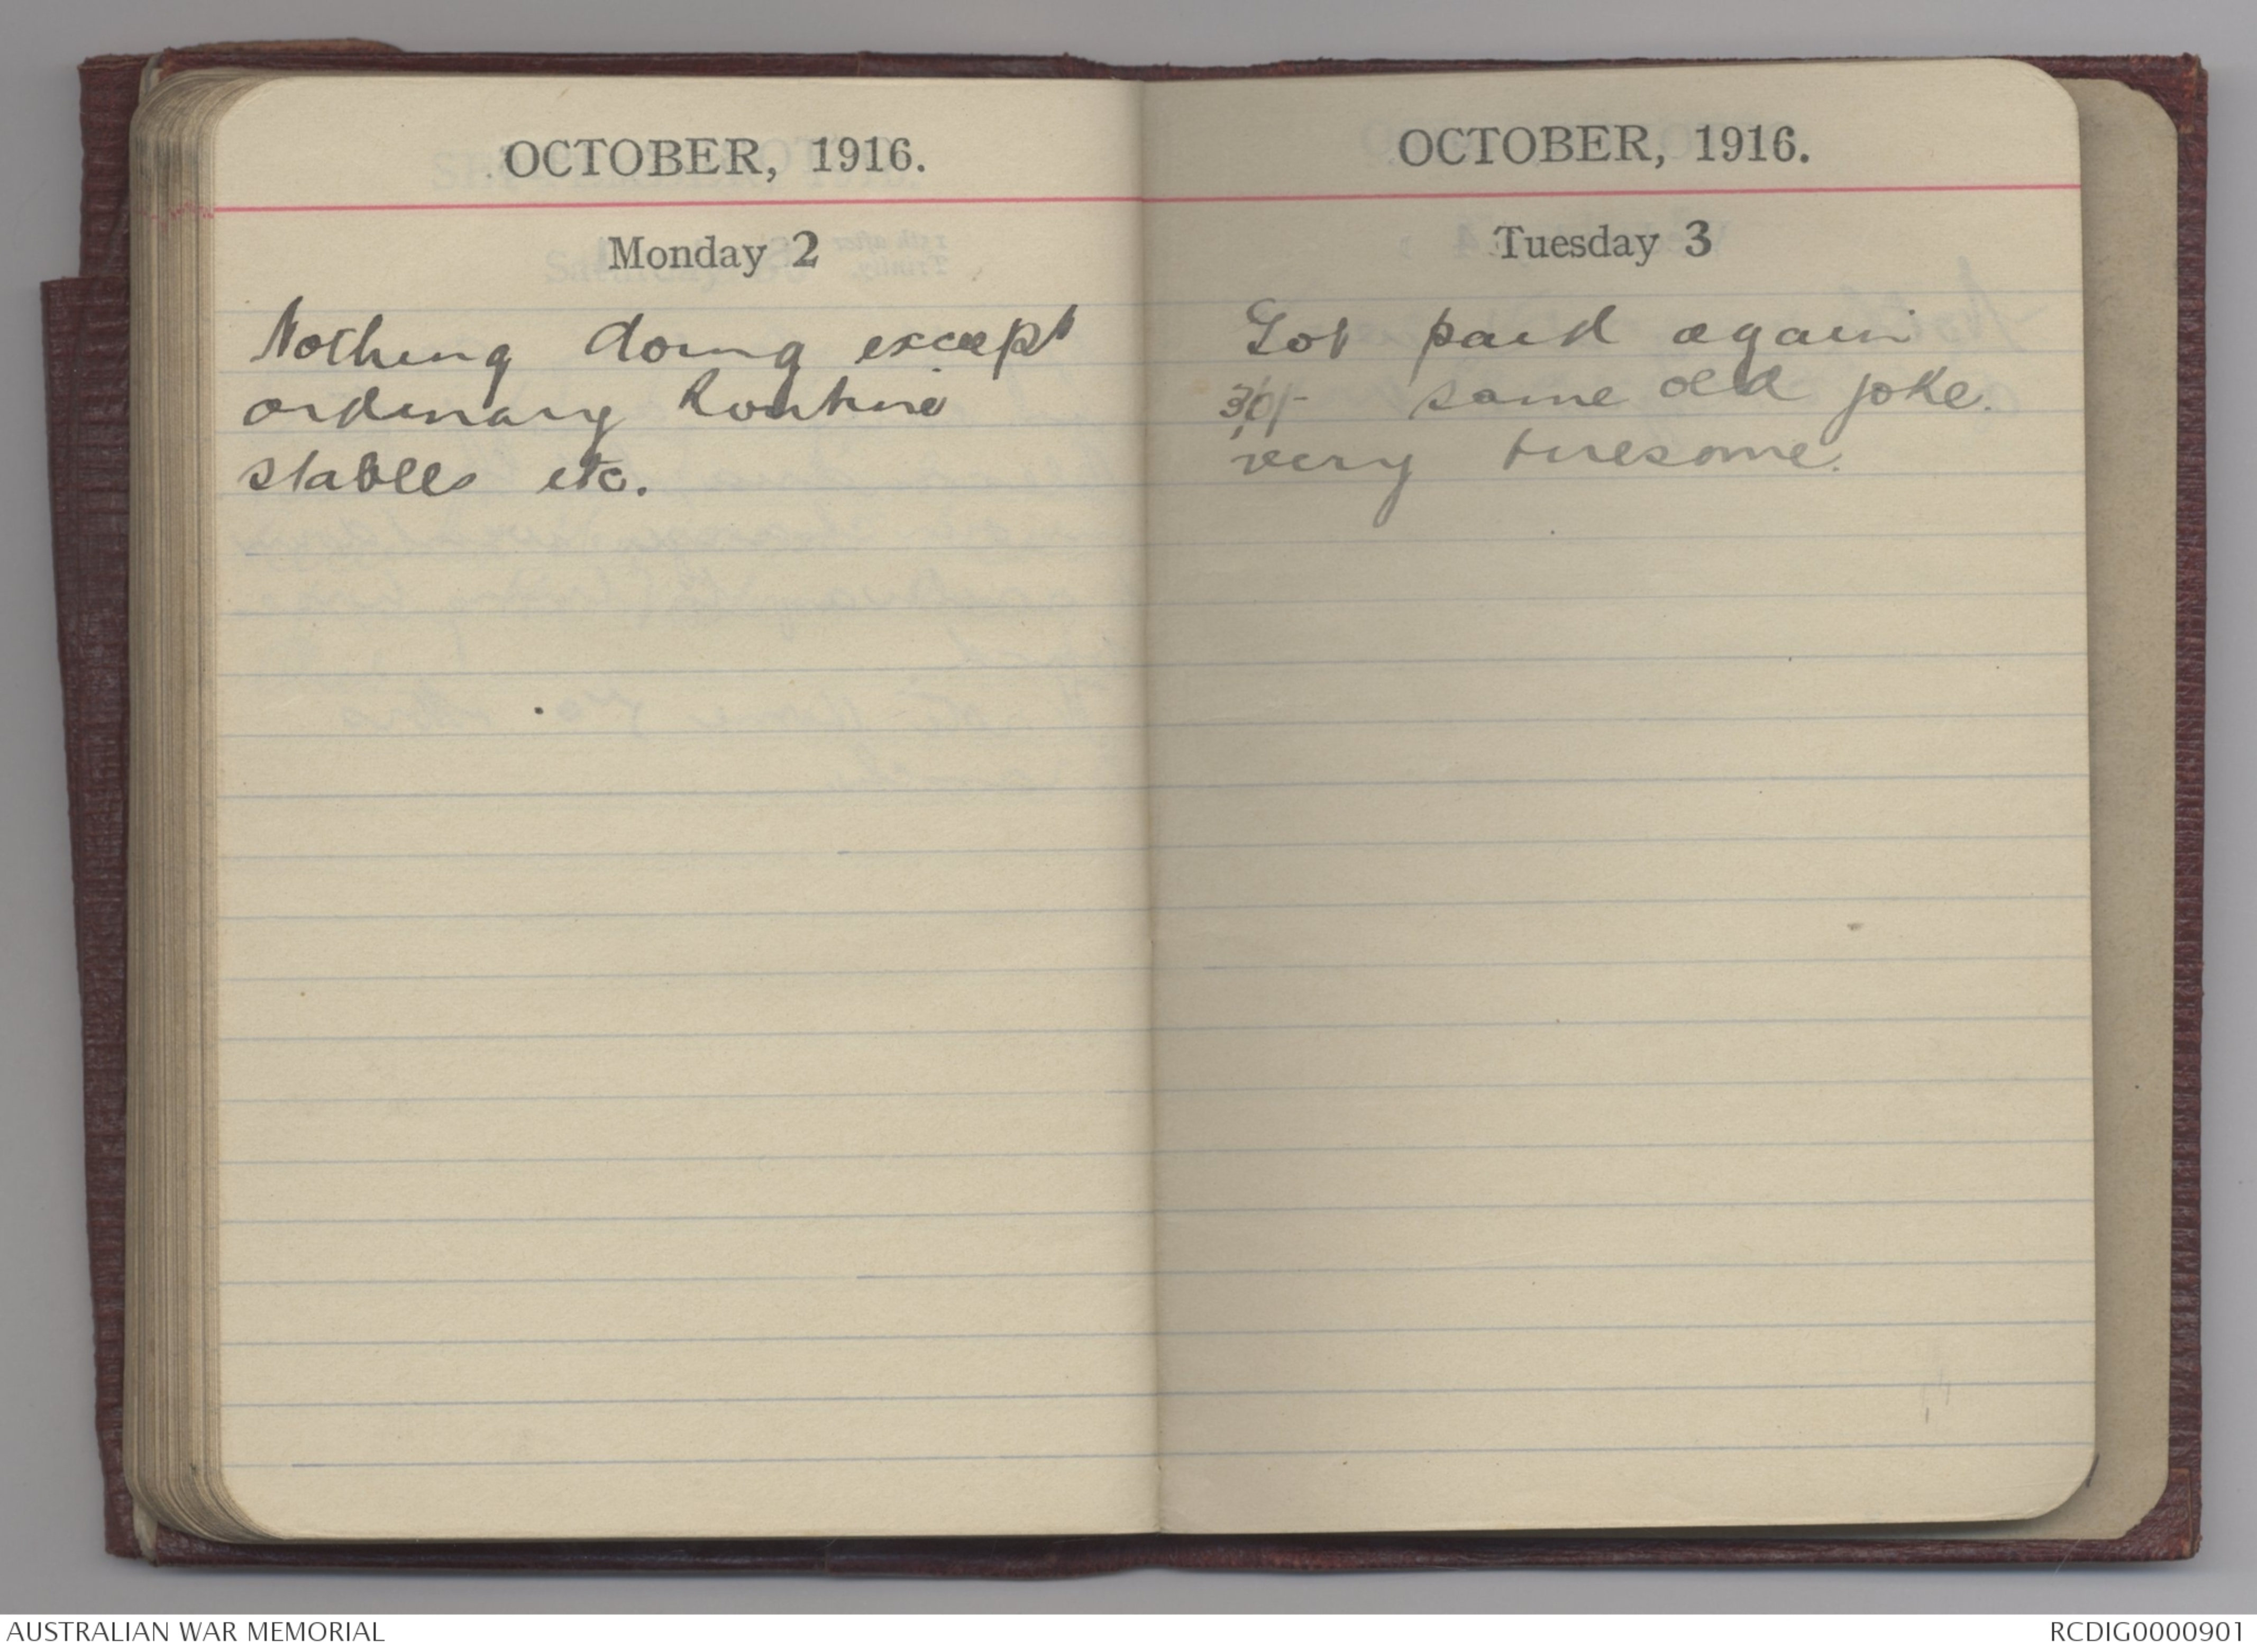 OCTOBER, 1916.
Monday 2
Nothing doing except
ordinary Routine
stables etc.
OCTOBER, 1916.
Tuesday 3
Got paid again
30/- same old joke.
very tiresome.
AUSTRALIAN WAR MEMORIAL
RCDIG0000901